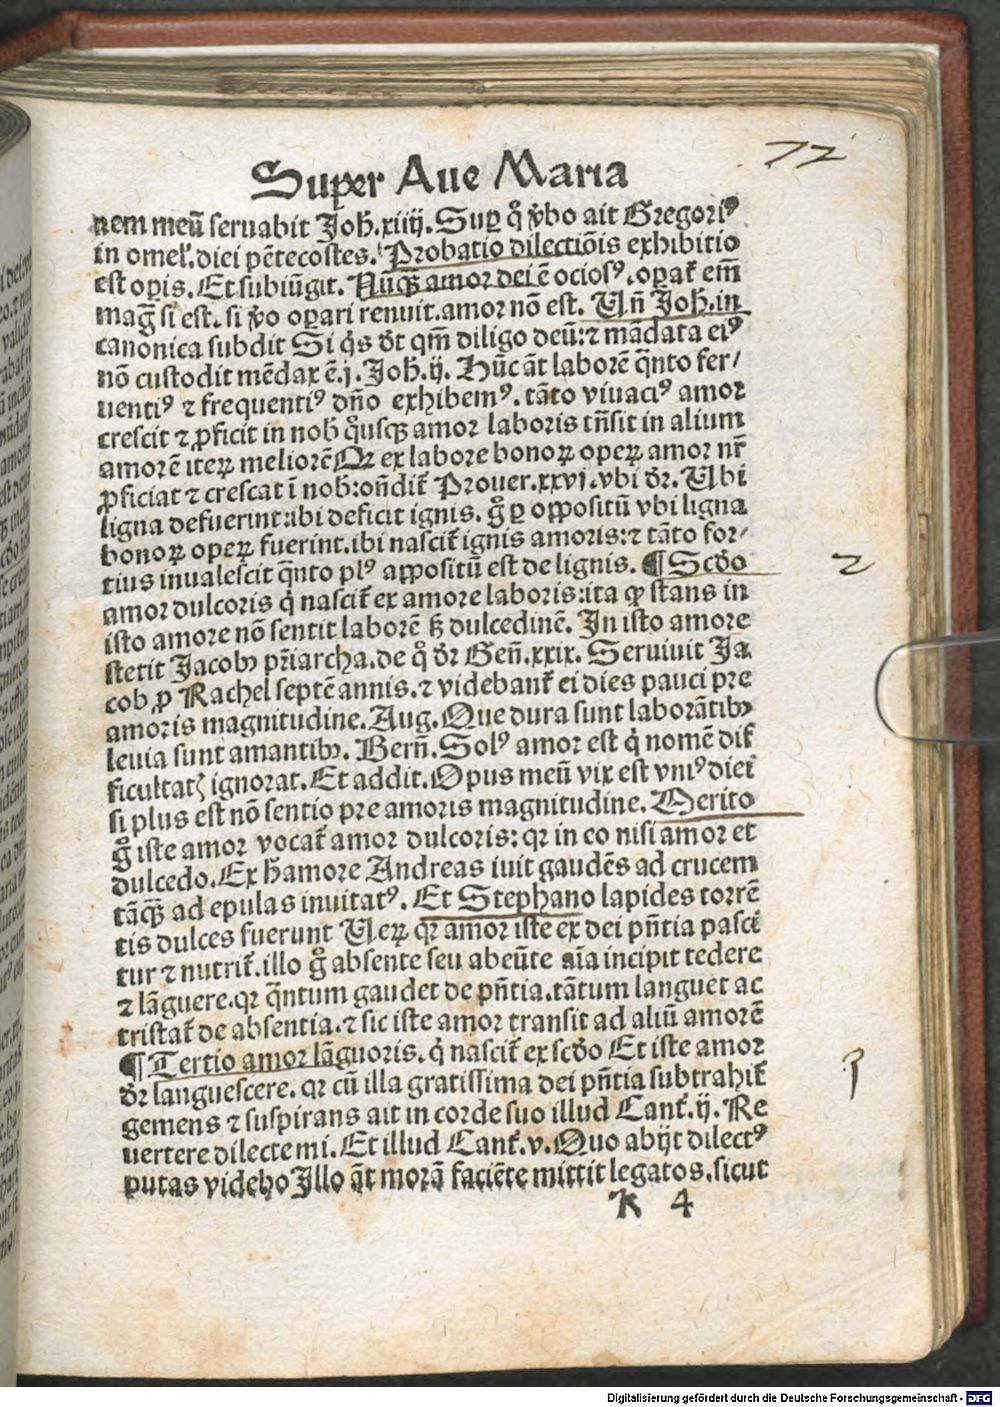 72
Super Aue Maria
nem meū seruabit Joh̄.xiiij. Suꝑ qͦ v̓bo ait Gregoriꝰ
in omel'. diei pētecostes. Probatio dilectiōis exhibitio
est oꝑis. Et subiūgit. Nūqꝫ amor dei ē ociosꝰ. oꝑat̄ em̄
maḡ si est. si v̓o oꝑari renuit. amor nō est. Vn̄ Joh̄. in
canonica subdit Si qͥs dt̄ qm̄ diligo deū: ⁊ mādata eiꝰ
nō custodit mēdax ē. j. Joh̄. ij. Hūc āt laborē qͣnto fer/
uentiꝰ ⁊ frequentiꝰ dn̄o exhibemꝰ. tāto viuaciꝰ amor
crescit ⁊ ꝓficit in nob̄ qͦusqꝫ amor laboris trn̄sit in alium
amorē iteꝝ meliorē Qꝛ ex labore bonoꝝ opeꝝ amor nr̄
ꝓficiat ⁊ crescat ī nob̄: on̄dit̄ Prouer. xxvj. vbi dꝛ. Vbi
ligna defuerint: ibi deficit ignis. gͦ ꝑ oppositū vbi ligna
bonoꝝ opeꝝ fuerint. ibi nascit̄ ignis amoris: ⁊ tāto for/
tius inualescit qͣnto plꝰ appositū est de lignis. ¶ Scd̄o
2
amor dulcoris qͥ nascit̄ ex amore laboris: ita ꝙ stans in
isto amore nō sentit laborē sꝫ dulcedinē. In isto amore
stetit Jacobꝰ pr̄iarcha. de qͦ dꝛ Gen̄. xxix. Seruiuit Ja
cob ꝓ Rachel septē annis. ⁊ videbant̄ ei dies pauci pre
amoris magnitudine. Aug. Que dura sunt laborātibꝫ
leuia sunt amantibꝫ. Bern̄. Solꝰ amor est qͥ nomē dif
ficultatꝭ ignorat. Et addit. Opus meū vix est vniꝰ diei
si plus est nō sentio pre amoris magnitudine. Merito
gͦ iste amor vocat̄ amor dulcoris: qꝛ in eo nisi amor et
dulcedo. Ex h̄ amore Andreas iuit gaudēs ad crucem
tāqꝫ ad epulas inuitatꝰ. Et Stephano lapides torrē
tis dulces fuerunt Veꝝ qꝛ amor iste ex dei pn̄tia pasci
tur ⁊ nutrit̄. illo gͦ absente seu abeūte aīa incipit tedere
⁊ lāguere. qꝛ qͣntum gaudet de pn̄tia. tātum languet ac
tristat̄ de absentia. ⁊ sic iste amor transit ad aliū amorē
¶ Tertio amor lāguoris. qͥ nascit̄ ex scd̄o Et iste amor
3
dꝛ languescere. qꝛ cū illa gratissima dei pn̄tia subtrahit̄
gemens ⁊ suspirans ait in corde suo illud Cant̄. ij. Re
uertere dilecte mi. Et illud Cant̄. v. Quo abijt dilectꝰ
putas videbo Illo āt morā faciēte mittit legatos. sicut
K 4
Digitalisierung gefördert durch die Deutsche Forschungsgemeinschaft - DFG